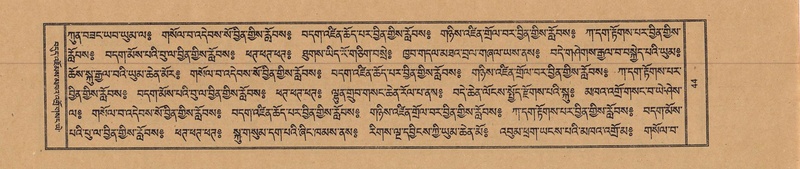 ཀུན་བཟང་ཡབ་ཡུམ་ལ༔ གསོལ་བ་འདེབས་སོ་བྱིན་གྱིས་རློབས༔ བདག་འཛིན་ཆོད་པར་བྱིན་གྱིས་རློབས༔ གཉིས་འཛིན་གྲོལ་བར་བྱིན་གྱིས་རློབས༔ ཀ་དག་རྟོགས་པར་བྱིན་གྱིས་
རློབས༔ བདག་མོས་པའི་བུ་ལ་བྱིན་གྱིས་རློབས༔ ཕཊ་ཕཊ་ཕཊ༔ ཐུགས་ཡིད་རོ་གཅིག་བསྲེ༔ ཁྱབ་གདལ་མཐའ་བྲལ་གཞལ་ཡས་ནས༔ བདེ་གཤེགས་རྒྱལ་བ་བསྐྱེད་པའི་ཡུམ༔
ཆོས་སྐུ་རྒྱལ་བའི་ཡུམ་ཆེན་མོར༔ གསོལ་བ་འདེབས་སོ་བྱིན་གྱིས་རློབས༔ བདག་འཛིན་ཆོད་པར་བྱིན་གྱིས་རློབས༔ གཉིས་འཛིན་གྲོལ་བར་བྱིན་གྱིས་རློབས༔ ཀ་དག་རྟོགས་པར་
བྱིན་གྱིས་རློབས༔ བདག་མོས་པའི་བུ་ལ་བྱིན་གྱིས་རློབས༔ ཕཊ་ཕཊ་ཕཊ༔ ལྷུན་གྲུབ་གསང་ཆེན་རོལ་པ་ནས༔ བདེ་ཆེན་ལོངས་སྤྱོད་རྫོགས་པའི་སྐུ༔ མཁའ་འགྲོ་གསང་བ་ཡེ་ཤེས་
ལ༔ གསོལ་བ་འདེབས་སོ་བྱིན་གྱིས་རློབས༔ བདག་འཛིན་ཆོད་པར་བྱིན་གྱིས་རློབས༔ གཉིས་འཛིན་གྲོལ་བར་བྱིན་གྱིས་རློབས༔ ཀ་དག་རྟོགས་པར་བྱིན་གྱིས་རློབས༔ བདག་མོས་
པའི་བུ་ལ་བྱིན་གྱིས་རློབས༔ ཕཊ་ཕཊ་ཕཊ༔ སྐུ་གསུམ་དག་པའི་ཞིང་ཁམས་ནས༔ རིགས་ལྔ་དབྱིངས་ཀྱི་ཡུམ་ཆེན་མོ༔ འབུམ་ཕྲག་ཡངས་པའི་མཁའ་འགྲོ་མ༔ གསོལ་བ་